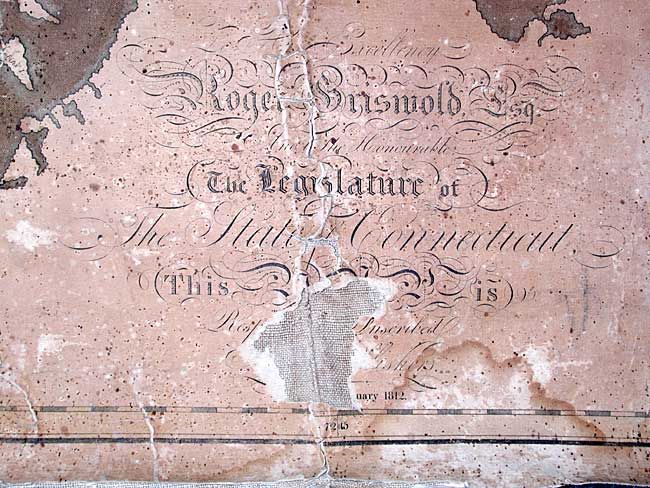 Excellency
Roger Griswold Esq.
And the Honourable
(The Legislature of)
The State Connecticut
(This MAP is)
Inscribed
uary 1812.
7245